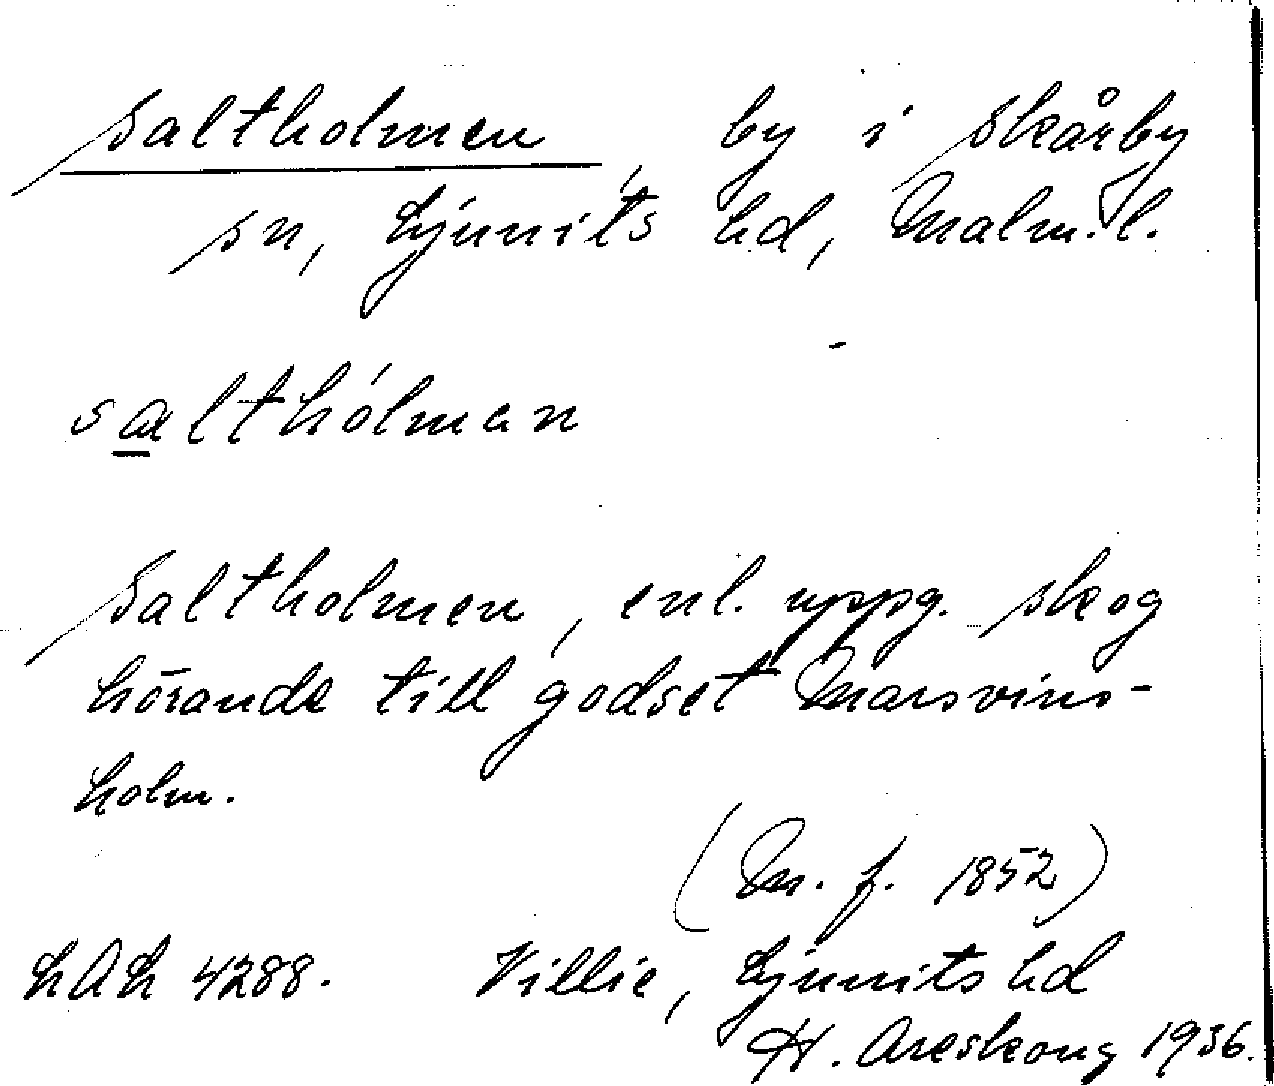 Saltholmen, by i Skårby
sn, Ljunits hd, Malm. l.
sælthólman
Saltholmen, enl. uppg. skog
hörande till godset Marsvins-
holm.
(M. f. 1852)
LAL 4288. Villie, Ljunits hd
H. Areskoug 1936.